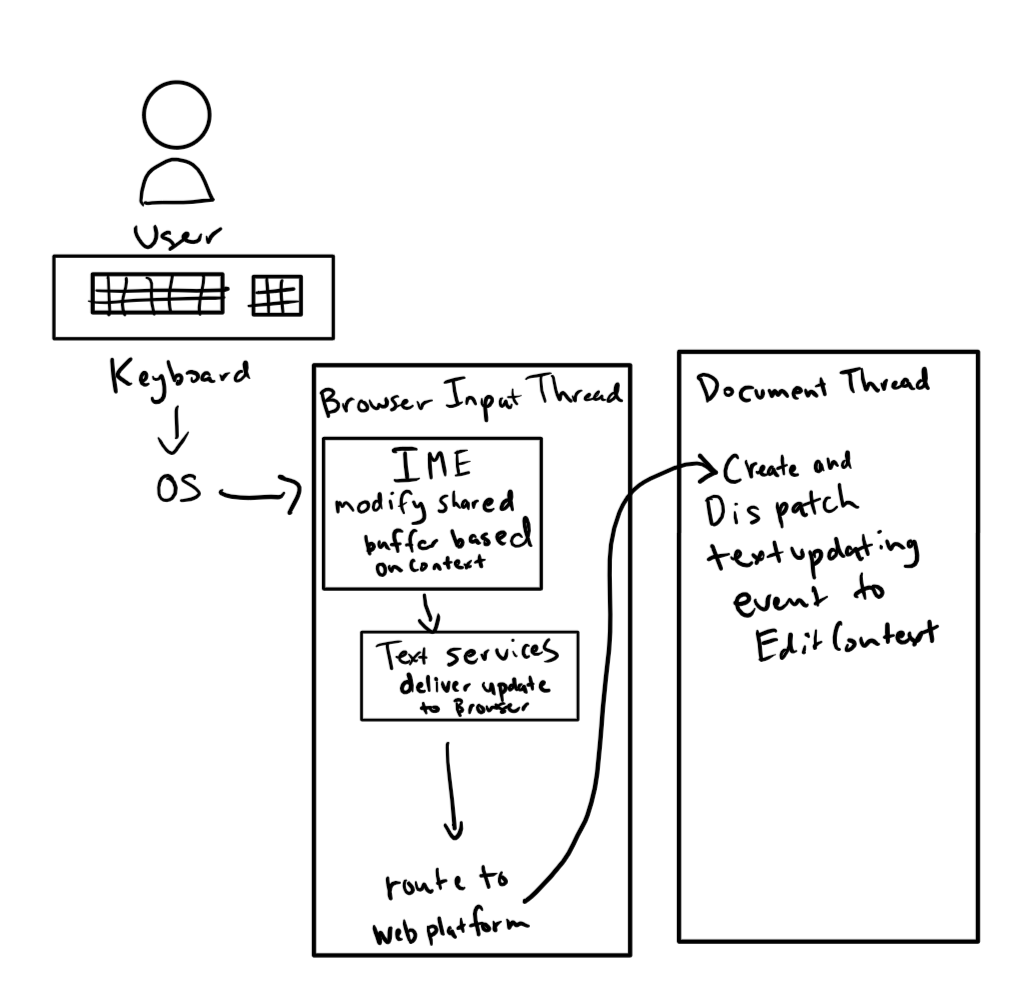 User
Keyboard
OS
Browser Input Thread
IME
modify shared
buffer based
on context
Text services
deliver update
to Browser
route to
web platform
Document Thread
Create and
Dispatch
textupdating
event to
EditContext